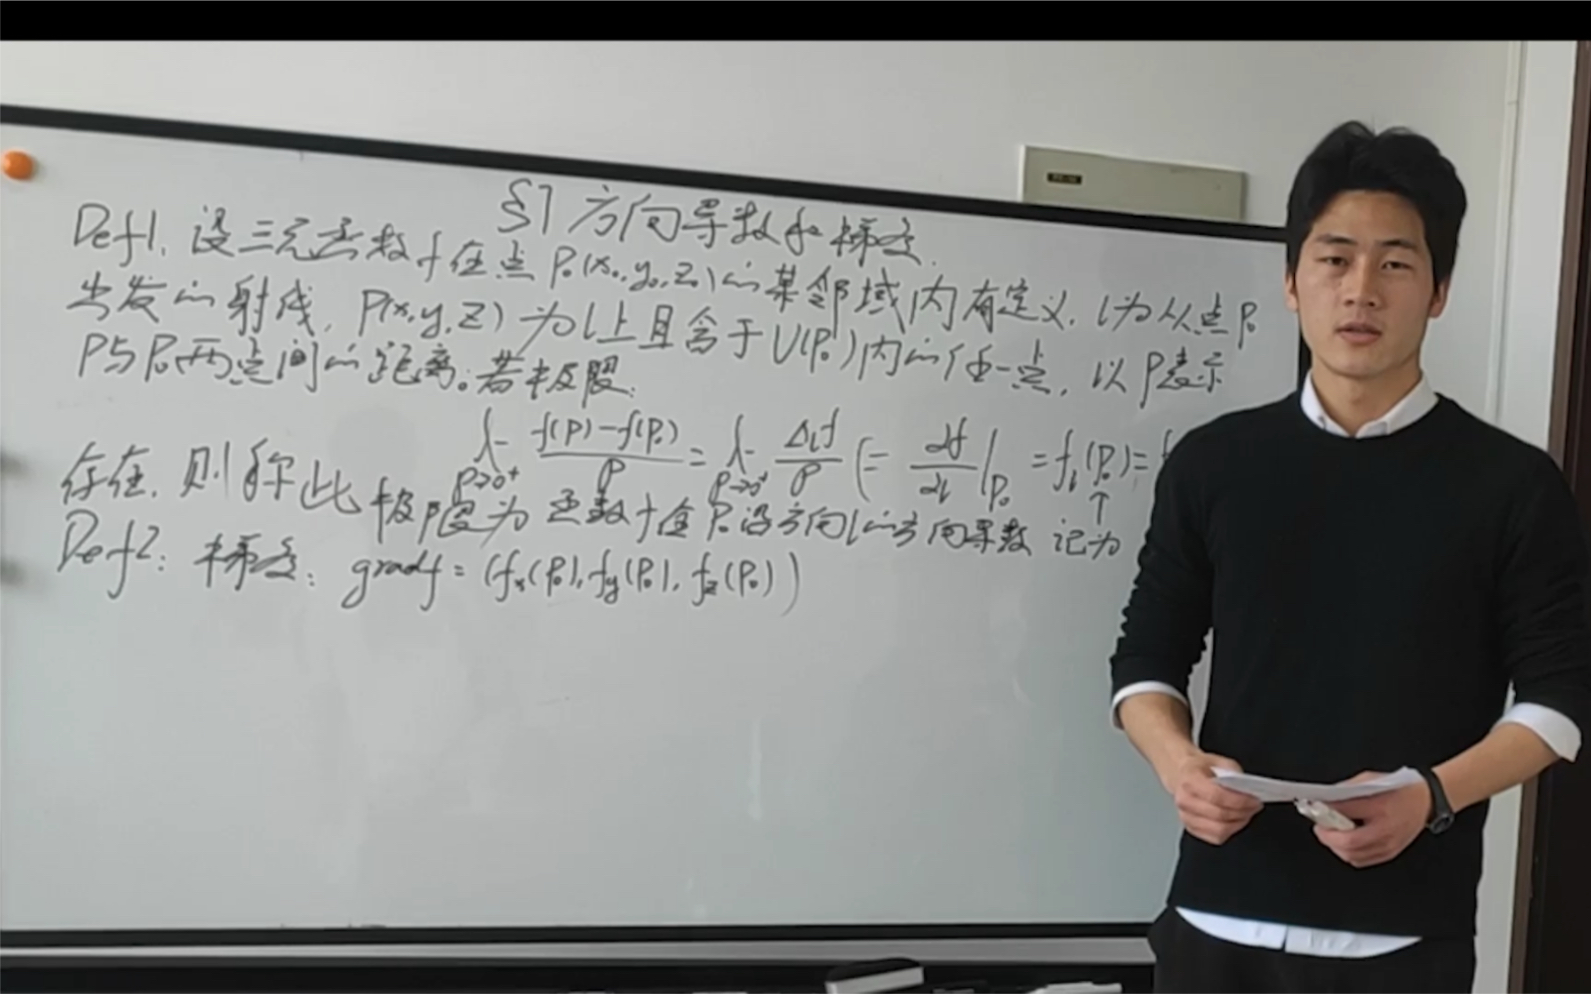 §7 方向导数和梯度.
Def1. 设三元函数f在点P₀(x₀,y₀,z₀)的某邻域内有定义. l为从点P₀
出发的射线, P(x,y,z)为l上且含于U(P₀)内的任一点, 以ρ表示
P与P₀两点间的距离。若极限:
lim ρ→0⁺ (f(P)-f(P₀))/ρ = lim ρ→0⁺ Δₗf/ρ (= ∂f/∂l|P₀ = fₗ(P₀) =
存在, 则称此极限为函数f在P₀沿方向l的方向导数 记为
Def2: 梯度: gradf = (fₓ(P₀), fy(P₀), fz(P₀))